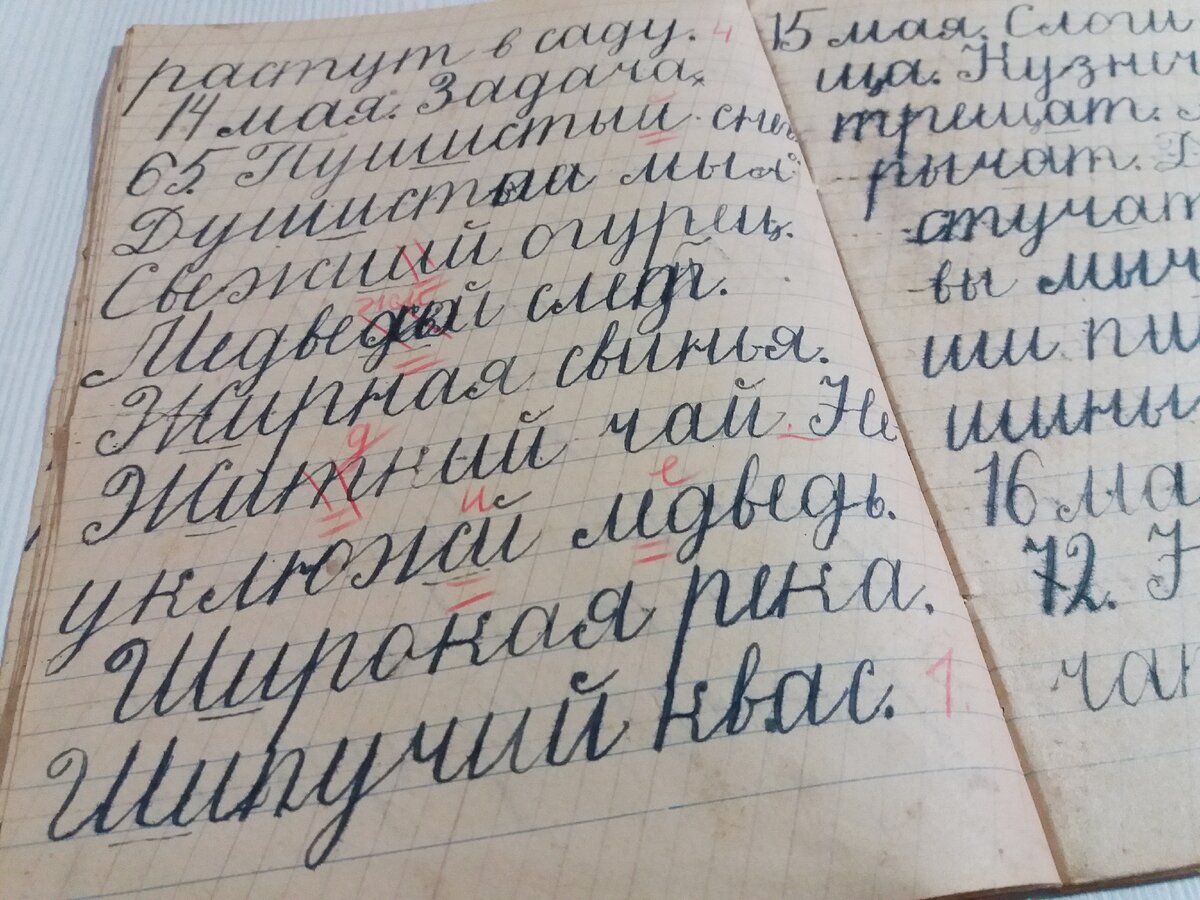 растут в саду. 4
14 мая. Задача.
65. Пушистый снег
Душистаа мыла.
Свежиий огурец.
след.
Жирная свинья.
Житкий чай. Не
уклюжай мдведь.
Широкая река.
Шипучий квас. 1
д
и
е
15 мая. Слоги
ща. Кузнеч
трещат.
рычат.
стучат
вы мыч
ши пи
шины
16 ма
72. Н
чан